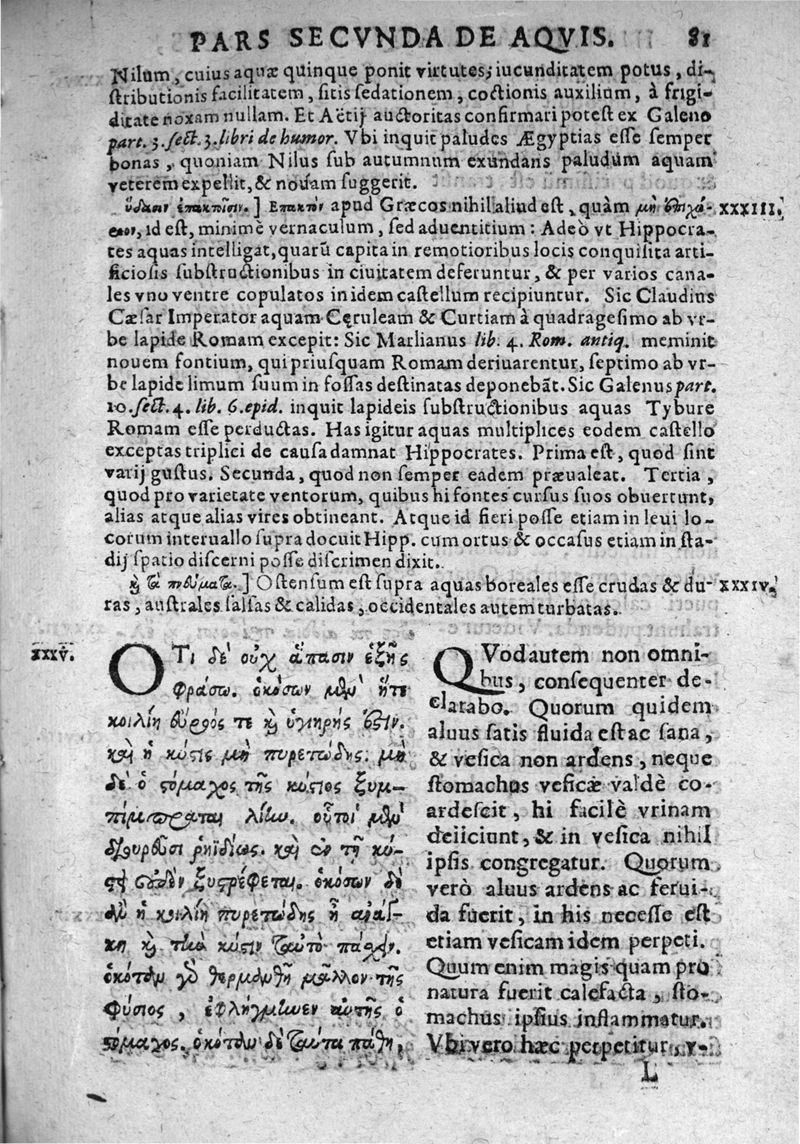 PARS SECVNDA DE AQVIS. 81
Nilum, cuius aquæ quinque ponit virtutes; iucunditatem potus, di-
stributionis facilitatem, sitis sedationem, coctionis auxilium, à frigi-
ditate noxam nullam. Et Aëtij auctoritas confirmari potest ex Galeno
part. 3. sect. 3. libri de humor. Vbi inquit paludes Ægyptias esse semper
bonas, quoniam Nilus sub autumnum exundans paludum aquam
veterem expellit, & nouam suggerit.
ὕδασιν ἐπακτοῖσιν.] Επακτὸν apud Græcos nihil aliud est, quàm μὴ ἐπιχώ- XXXIII.
ριον, id est, minimè vernaculum, sed aduentitium: Adeò vt Hippocra-
tes aquas intelligat, quarũ capita in remotioribus locis conquisita arti-
ficiosis substructionibus in ciuitatem deferuntur, & per varios cana-
les vno ventre copulatos in idem castellum recipiuntur. Sic Claudius
Cæsar Imperator aquam Cęruleam & Curtiam à quadragesimo ab vr-
be lapide Romam excepit: Sic Marlianus lib. 4. Rom. antiq. meminit
nouem fontium, qui priusquam Romam deriuarentur, septimo ab vr-
be lapide limum suum in fossas destinatas deponebãt. Sic Galenus part.
10. sect. 4. lib. 6. epid. inquit lapideis substructionibus aquas Tybure
Romam esse perductas. Has igitur aquas multiplices eodem castello
exceptas triplici de causa damnat Hippocrates. Prima est, quod sint
varij gustus. Secunda, quod non semper eadem præualeat. Tertia,
quod pro varietate ventorum, quibus hi fontes cursus suos obuertunt,
alias atque alias vires obtineant. Atque id fieri posse etiam in leui lo-
corum interuallo supra docuit Hipp. cum ortus & occasus etiam in sta-
dij spatio discerni posse discrimen dixit.
καὶ τὰ πνεύματα.] Ostensum est supra aquas boreales esse crudas & du- XXXIV.
ras, australes salsas & calidas, occidentales autem turbatas.
XXXV. ΟΤι δὲ οὐχ ἅπασιν ἑξῆς
φράσω. ὁκόσων μὲν ἥτε
κοιλίη εὔροός τε καὶ ὑγιηρής ἐστιν.
καὶ ἡ κύστις μὴ πυρετώδης. μὴ
δὲ ὁ στόμαχος τῆς κύστιος ξυμ-
πέφρακται λίην. οὗτοι μὲν
διουρεῦσι ῥηϊδίως. καὶ ἐν τῇ κύ-
στι οὐδὲν ξυστρέφεται. ὁκόσων δὲ
ἂν ἡ κοιλίη πυρετώδης ᾖ ἀνάγ-
κη καὶ τὴν κύστιν ταὐτὸ πάσχειν.
ὁκόταν γὰρ θερμανθῇ μᾶλλον τῆς
φύσιος, ἐφλήγμηνεν αὐτῆς ὁ
στόμαχος. ὁκόταν δὲ ταῦτα πάθῃ,
QVod autem non omni-
bus, consequenter de-
clarabo. Quorum quidem
aluus satis fluida est ac sana,
& vesica non ardens, neque
stomachus vesicæ valdè co-
ardescit, hi facilè vrinam
deiiciunt, & in vesica nihil
ipsis congregatur. Quorum
verò aluus ardens ac ferui-
da fuerit, in his necesse est
etiam vesicam idem perpeti.
Quum enim magis quam pro
natura fuerit calefacta, sto-
machus ipsius inflammatur.
Vbi vero hæc perpetitur, v-
L